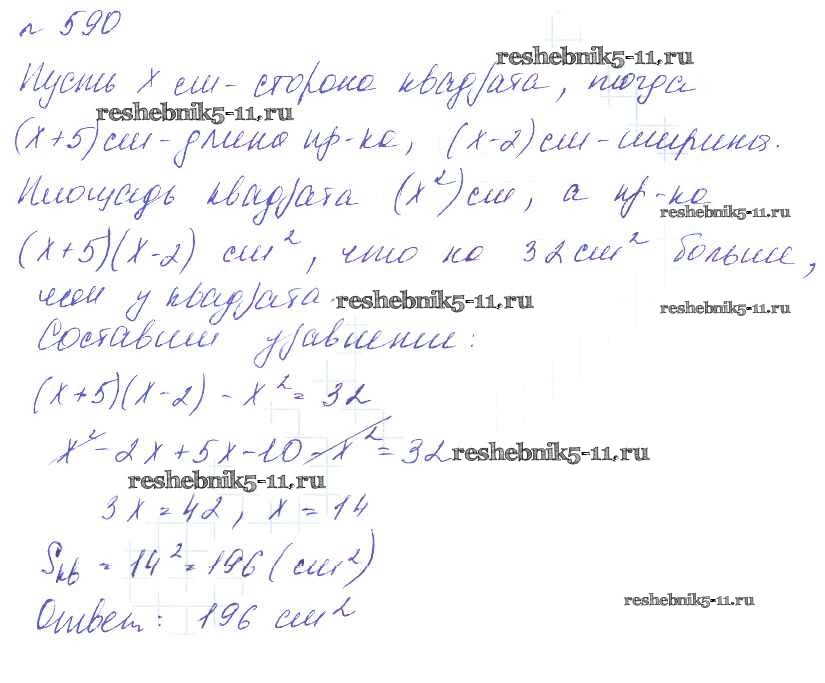 № 590
reshebnik5-11.ru
Пусть x см - сторона квадрата, тогда
reshebnik5-11.ru
(x+5) см - длина пр-ка, (x-2) см - ширина.
Площадь квадрата (x²) см, а пр-ка
reshebnik5-11.ru
(x+5)(x-2) см², что на 32 см² больше,
чем у квадрата. reshebnik5-11.ru
reshebnik5-11.ru
Составим уравнение:
(x+5)(x-2) - x² = 32
x² - 2x + 5x - 10 - x² = 32 reshebnik5-11.ru
reshebnik5-11.ru
3x = 42, x = 14
Sкв = 14² = 196 (см²)
reshebnik5-11.ru
Ответ: 196 см²